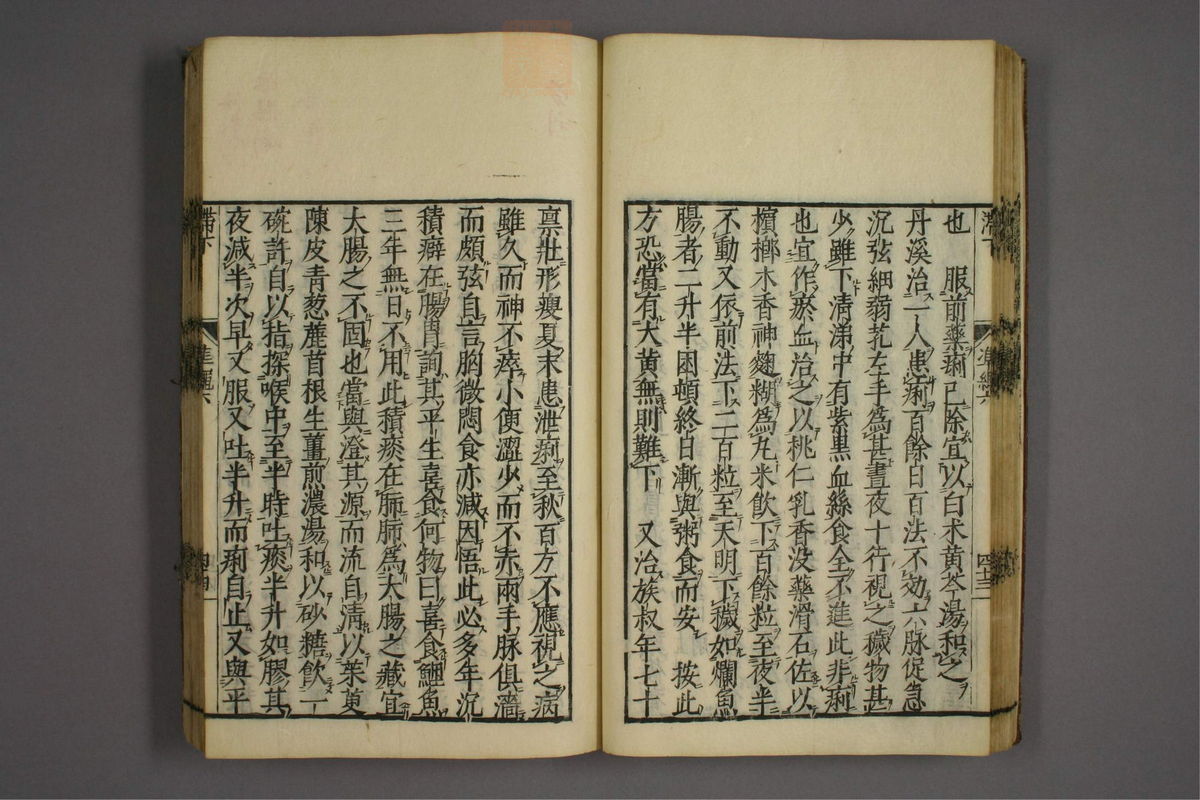 也　服前藥痢已除宜以白术黄芩湯和之
丹溪治一人患痢百餘日百法不効六脉促急
沉弦細弱芤左手爲甚晝夜十行視之穢物甚
少雖下清涕中有紫黒血絲食全不進此非痢
也宜作瘀血治之以桃仁乳香没藥滑石佐以
檳榔木香神麴糊爲丸米飲下百餘粒至夜半
不動又依前法下二百粒至天明下穢如爛魚
腸者二升半困頓終日漸與粥食而安　按此
方恐當有大黄無則難下　又治族叔年七十
禀壯形瘦夏末患泄痢至秋百方不應視之病
雖久而神不瘁小便澀少而不赤兩手脉俱濇
而頗弦自言胸微悶食亦减因悟此必多年沉
積癖在腸胃詢其平生喜食何物曰喜食鯉魚
三年無日不用此積痰在肺肺爲大腸之藏宜
大腸之不固也當與澄其源而流自清以茱萸
陳皮青葱蔍首根生薑煎濃湯和以砂糖飲一
碗許自以指探喉中至半時吐痰半升如膠其
夜减半次早又服又吐半升而痢自止又與平
滯下
準繩六
四十三
滯下
準繩六
四十四